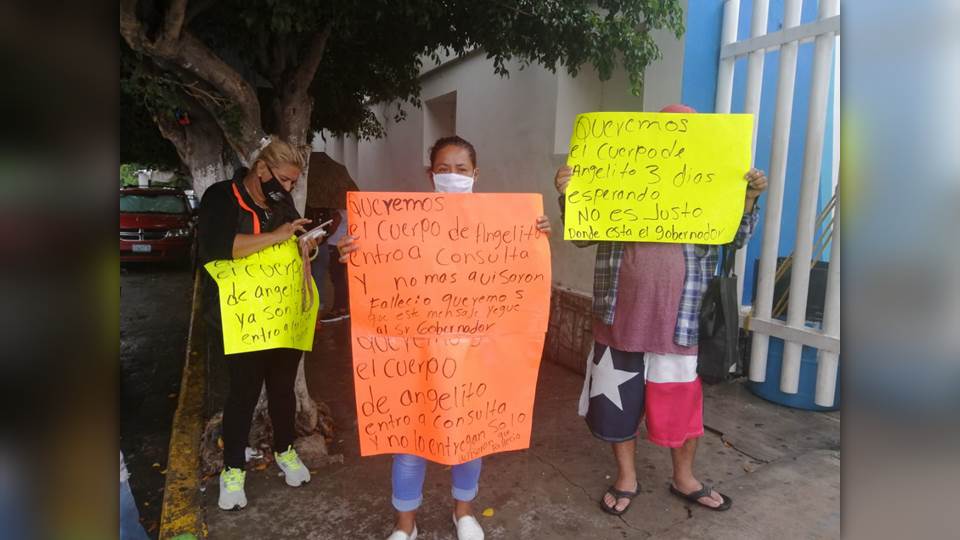 el cuerpo
de angelito
ya son 3
entro a
Queremos
el cuerpo de Angelito
entro a consulta
y no mas avisaron
fallecio queremos
que este mensaje yegue
al Sr Gobernador
Queremos
el cuerpo
de angelito
entro a consulta
y no lo entregan solo
dijeron que
fallecio
Queremos
el cuerpo de
Angelito 3 dias
esperando
No es Justo
Donde esta el gobernador